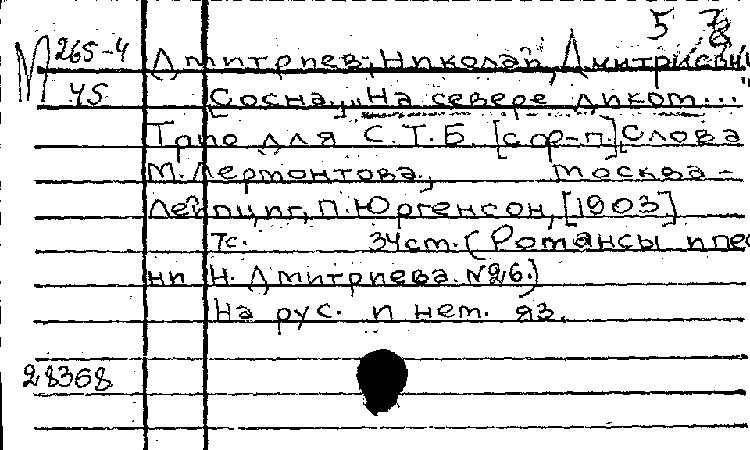 5 78
М 265-4 Дмитриев, Николай Дмитриевич
45 [Сосна.] "На севере диком..."
Трио для С.Т.Б. [с ф-п.] Слова
М. Лермонтова, Москва-
Лейпциг, П. Юргенсон, [1903]
7с. 34 ст. (Романсы и пес
ни Н. Дмитриева. №26.)
На рус. и нем. яз.
28368